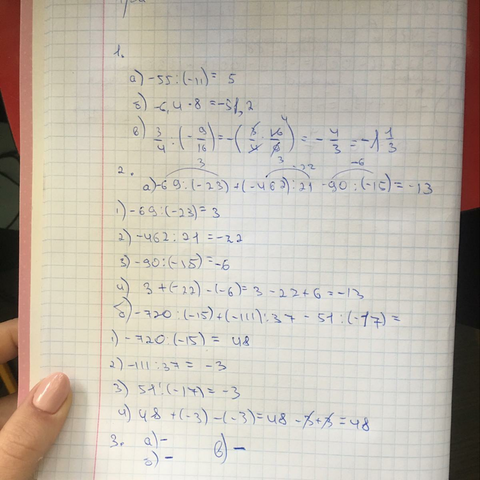 1.
а) -55:(-11)= 5
б) -6,4·8=-51,2
в) 3/4·(-9/16)=-(3/4·16/9)=-4/3=-1 1/3
3 -22 -6
2.
а) -69:(-23)+(-462):21-90:(-15)=-13
1) -69:(-23)=3
2) -462:21=-22
3) -90:(-15)=-6
4) 3+(-22)-(-6)=3-22+6=-13
б) -720:(-15)+(-111):37-51:(-17)=
1) -720:(-15)= 48
2) -111:37= -3
3) 51:(-17)=-3
4) 48+(-3)-(-3)=48-3+3=48
3. а)- в)-
б)-